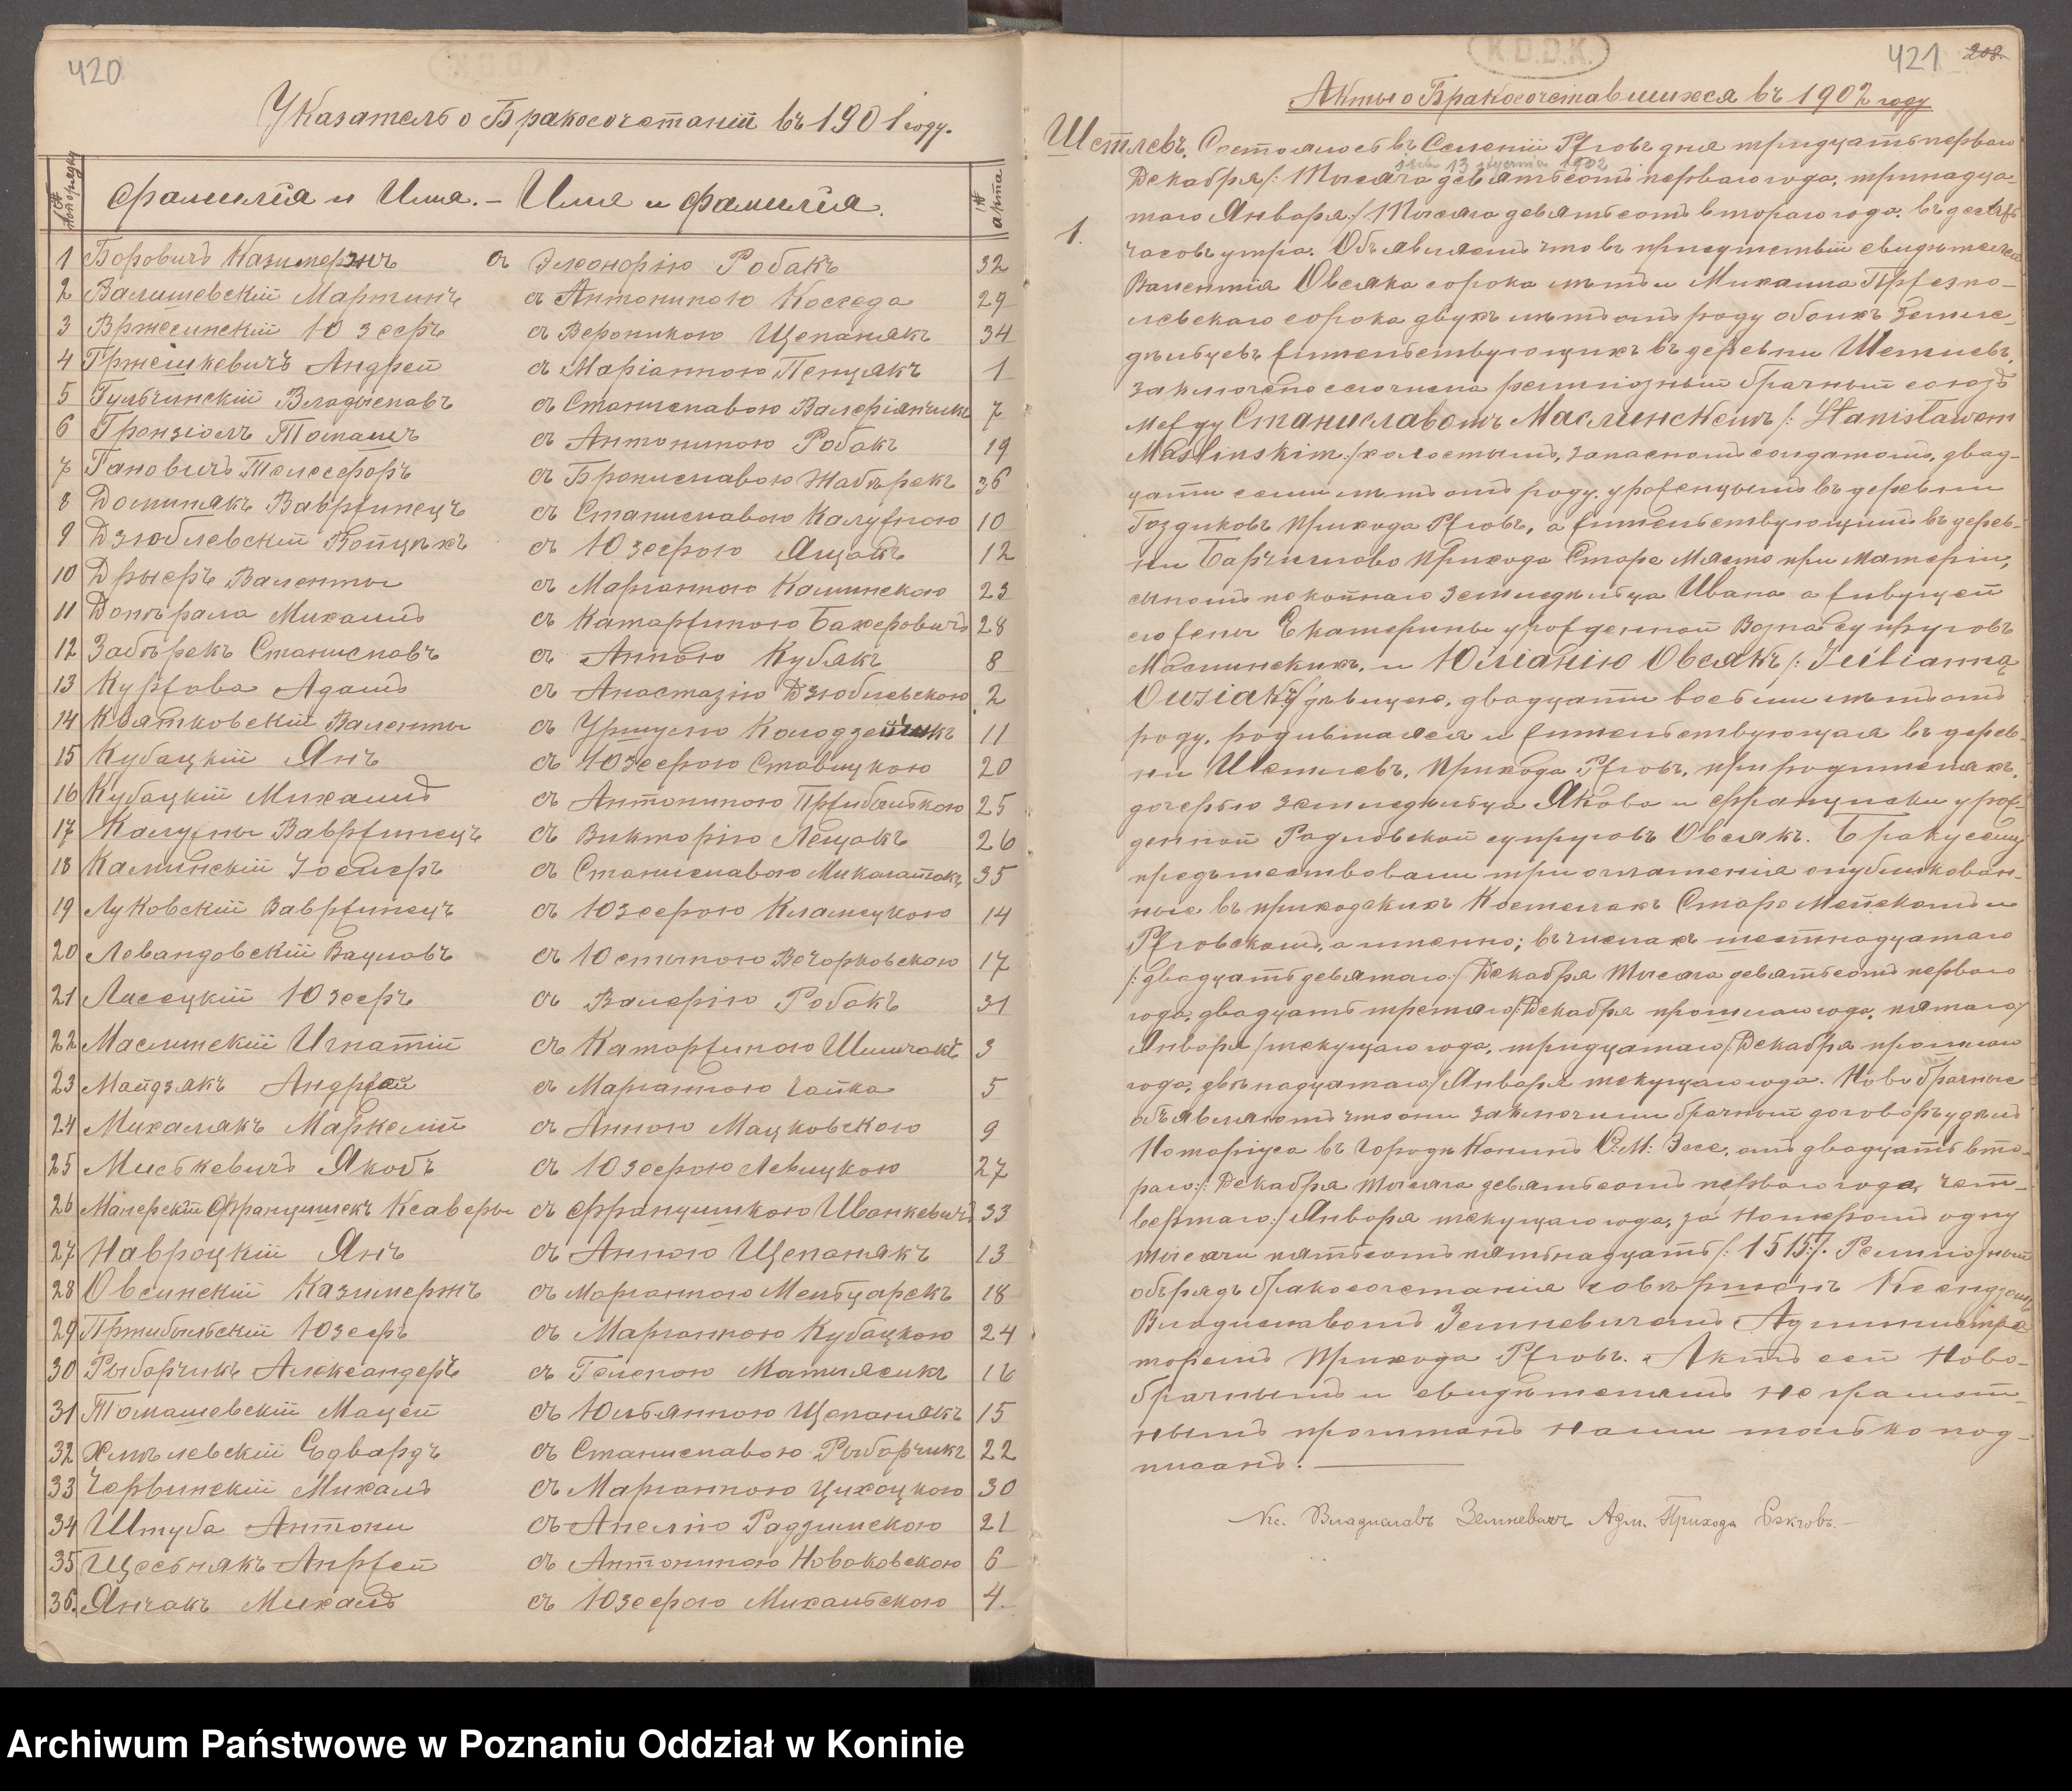 420
Указатель о Бракосочетаній въ 1901 году.
№ по порядку
Фамилія и Имя. - Имя и Фамилія.
№ акта
1 Боровичъ Казимержъ съ Элеонорію Робакъ 32
2 Валишевскій Мартинъ съ Антониною Коскеда 29
3 Вржесинскій Юзефъ съ Вероникою Щепанякъ 34
4 Гржешкевичъ Андрей съ Маріанною Пенцякъ 1
5 Гульчинскій Владыславъ съ Станиславою Валеріанчикъ 7
6 Грензіолъ Томашъ съ Антониною Робакъ 19
7 Гановичъ Телесфоръ съ Брониславою Жабѣрекъ 36
8 Доминякъ Вавржинецъ съ Станиславою Калужною 10
9 Дзюблевскій съ Юзефою Ящакъ 12
10 Дрыеръ Валенты съ Маріанною Каминскою 23
11 Домѣрала Михаилъ съ Катаржиною Бахеровичъ 28
12 Забѣрекъ Станиславъ съ Анною Кубякъ 8
13 Куржава Адамъ съ Анастазію Дзюблевскою 2
14 Квятковскій Валенты съ Уршулею Колодзейчикъ 11
15 Кубацкій Янъ съ Юзефою Ставицкою 20
16 Кубацкій Михаилъ съ Антониною Пржибыльскою 25
17 Калужны Вавржинецъ съ Викторію Лещакъ 26
18 Каминскій Іосифъ съ Станиславою Миколаткъ 35
19 Луковскій Вавржинецъ съ Юзефою Кламецкою 14
20 Левандовскій Вацлавъ съ Юстыною Вечорковскою 17
21 Лисецкій Юзефъ съ Валерію Робакъ 31
22 Маслинскій Игнатій съ Катаржиною Шимчакъ 3
23 Майдзякъ Андржей съ Маріанною Чайка 5
24 Михалякъ Маркелій съ Анною Мацковскою 9
25 Миськевичъ Якобъ съ Юзефою Левицкою 27
26 Манерскій Францишекъ Ксаверы съ Францишкою Иванкевичъ 33
27 Навроцкій Янъ съ Анною Щепанякъ 13
28 Овсинскій Казимержъ съ Маріанною Мельцарекъ 18
29 Пржибыльскій Юзефъ съ Маріанною Кубацкою 24
30 Рыбарчикъ Александеръ съ Геленою Матыясикъ 16
31 Томашевскій Мацей съ Юльянною Щепанякъ 15
32 Хмѣлевскій Едвардъ съ Станиславою Рыбарчикъ 22
33 Червинскій Михалъ съ Маріанною Цихоцкою 30
34 Штуба Антони съ Анелію Радзимскою 21
35 Щесьнякъ Анржей съ Антониною Новаковскою 6
36. Янчакъ Михаилъ съ Юзефою Михальскою 4.
K.D.D.K.
421 208.
Акты о Бракосочетавшихся въ 1902 году
Шетлевъ. Состоялось въ Селеніи Ржговъ дня тридцать перваго
13 stycznia 1902
Декабря /: Тысяча девятьсотъ перваго года, тринадца-
таго Января :/ Тысяча девятьсотъ втораго года. въ десять
1.
часовъ утра. Объявляемъ что въ присутствіи свидѣтелей
Валентія Овсяка сорока лѣтъ и Михаила Пржезпо-
левскаго сорока двухъ лѣтъ отъ роду обоихъ земле-
дѣльцевъ жительствующихъ въ деревни Шетлевъ.
заключено сего числа религіозный брачный союзъ
между Станиславомъ Маслинскимъ /: Stanisławem
Maslinskim :/ холостымъ, запаснымъ солдатомъ, двад-
цати семи лѣтъ отъ роду, урожденцымъ въ деревни
Гоздиковъ прихода Ржговъ, а жительствующимъ въ дерев-
ни прихода Старе Място при матеріи,
сыномъ покойнаго земледѣльца Ивана а живущей
его жены Екатерины урожденной супруговъ
Маслинскихъ, и Юліанію Овсякъ /: Julianną
Owsiak :/ дѣвицею, двадцати восьми лѣтъ отъ
роду, родившаяся и жительствующая въ дерев-
ни Шетлевъ, прихода Ржговъ, при родителяхъ.
дочерью земледѣльца Якова и Францишки урож-
денной Радловской супруговъ Овсякъ. Браку сему
предшествовали три оглашенія опубликован-
ные въ приходскихъ Костелахъ Старе Мейскомъ и
Ржговскомъ, а именно; въ числахъ шестнадцатаго
/: двадцать девятаго :/ Декабря тысяча девятьсотъ перваго
года, двадцать третяго /: Декабря прошлаго года, пятаго /
Января / текущаго года, тридцатаго /: Декабря прошлаго
года, двѣнадцатаго / Января текущаго года. Новобрачные
объявляютъ что они заключили брачный договоръ у дѣлъ
Нотаріуса въ городѣ Конинъ отъ двадцать вто-
раго :/: Декабря тысяча девятьсотъ перваго года, чет-
вертаго :/ Января текущаго года, за номеромъ одну
тысячи пятьсотъ пятьнадцать /: 1515 :/. Религіозный
обрядъ бракосочетанія совершенъ Ксендзомъ
Владиславомъ Земневичемъ Администра-
торемъ прихода Ржговъ. Актъ сей Ново-
брачнымъ и свидѣтелямъ неграмот-
нымъ прочитанъ Нами только под-
писанъ. —
Кс. Владиславъ Земневичъ Адм. Прихода Ржговъ. —
Archiwum Państwowe w Poznaniu Oddział w Koninie